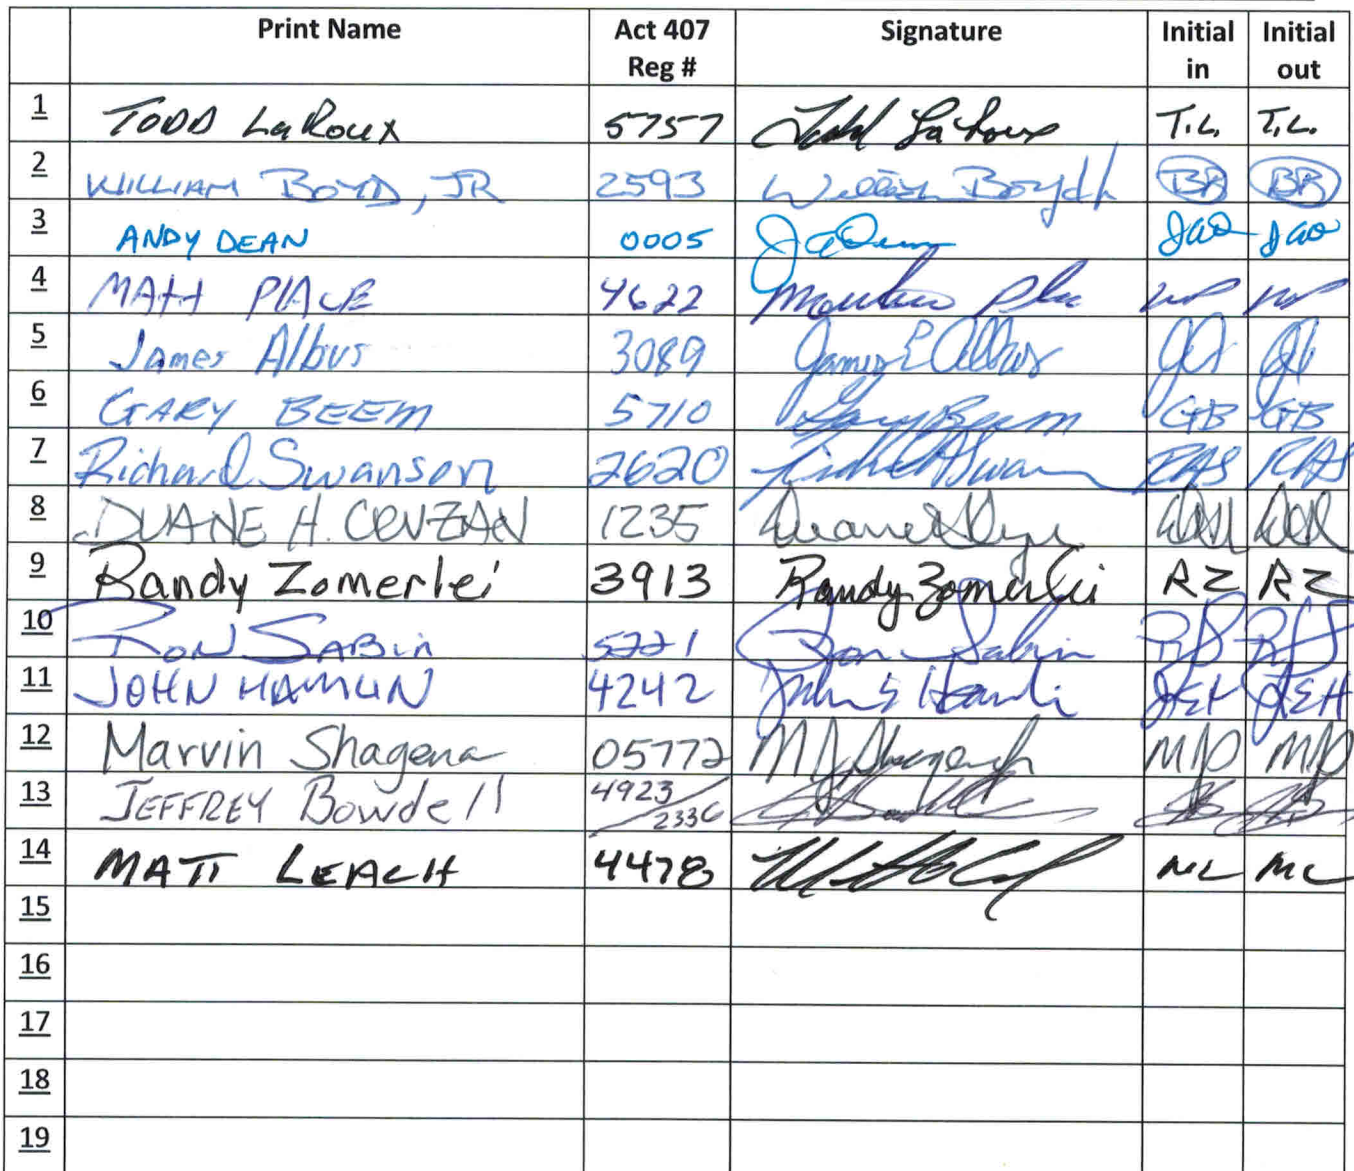 Print Name Act 407 Signature Initial Initial
Reg # in out
1 TODD LaRoux 5757 Todd LaRoux T.L. T.L.
2 WILLIAM BOYD, JR 2593 William Boyd Jr BB BB
3 ANDY DEAN 0005 JADean JAD JAD
4 MATT PLACE 4622
5 James Albus 3089 James E Albus JA JA
6 GARY BEEM 5710 Gary Beem GB GB
7 Richard Swanson 2620 Richard A Swan RAS RAS
8 DUANE H. 1235 Duane
9 Randy Zomerlei 3913 Randy Zomerlei RZ RZ
10 RON SABIN 5221 Ron Sabin RS RS
11 JOHN HAMLIN 4242 John E Hamlin JEH JEH
12 Marvin Shagena 05772 MJ Shagena
13 JEFFREY Bowdell 4923/2336 JB JB
14 MATT LEACH 4478 ML ML
15
16
17
18
19